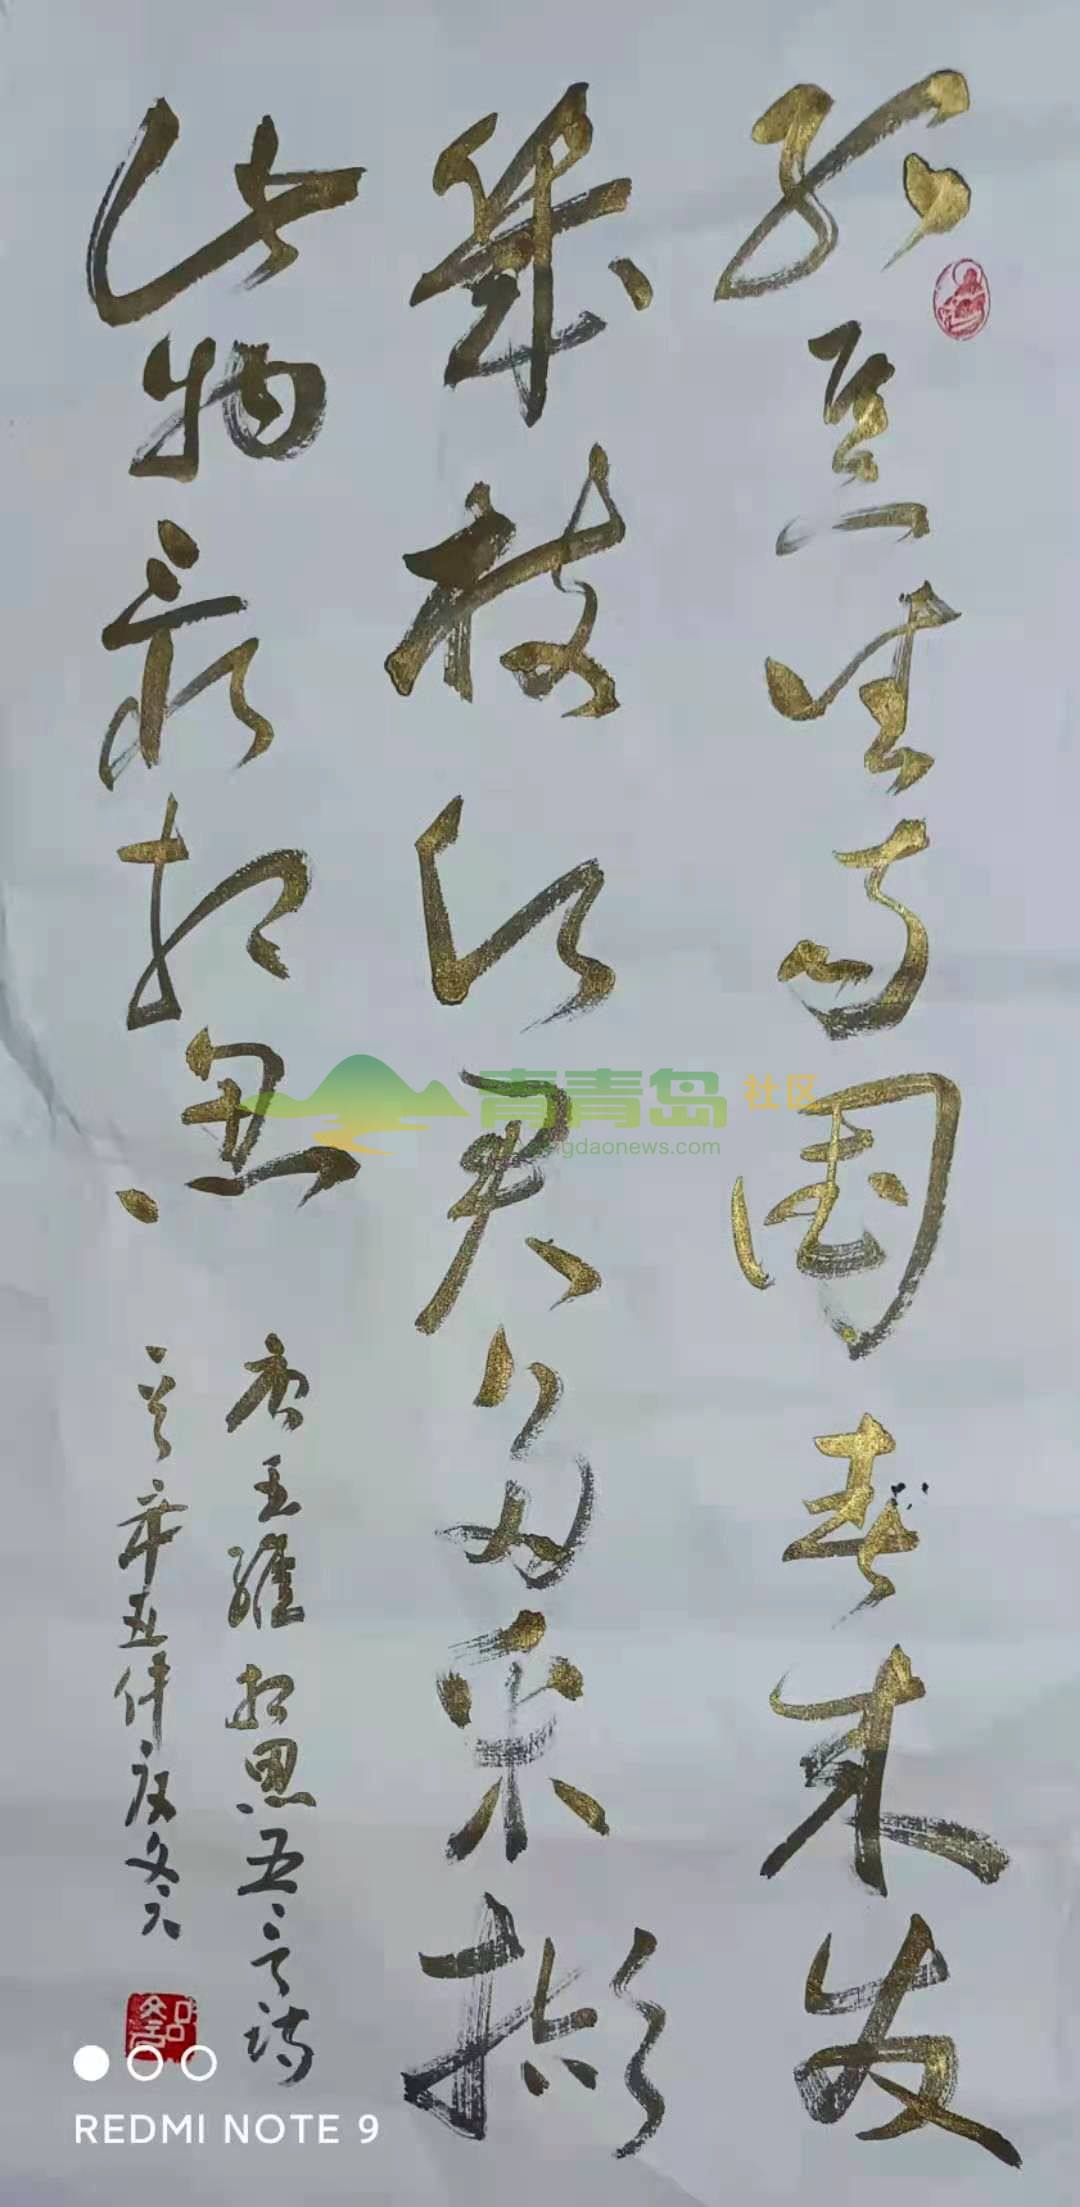 红豆生南国春来发
幾枝愿君多采撷
此物最相思
唐王維相思五言诗
辛丑
青青岛社区
qingdaonews.com
REDMI NOTE 9